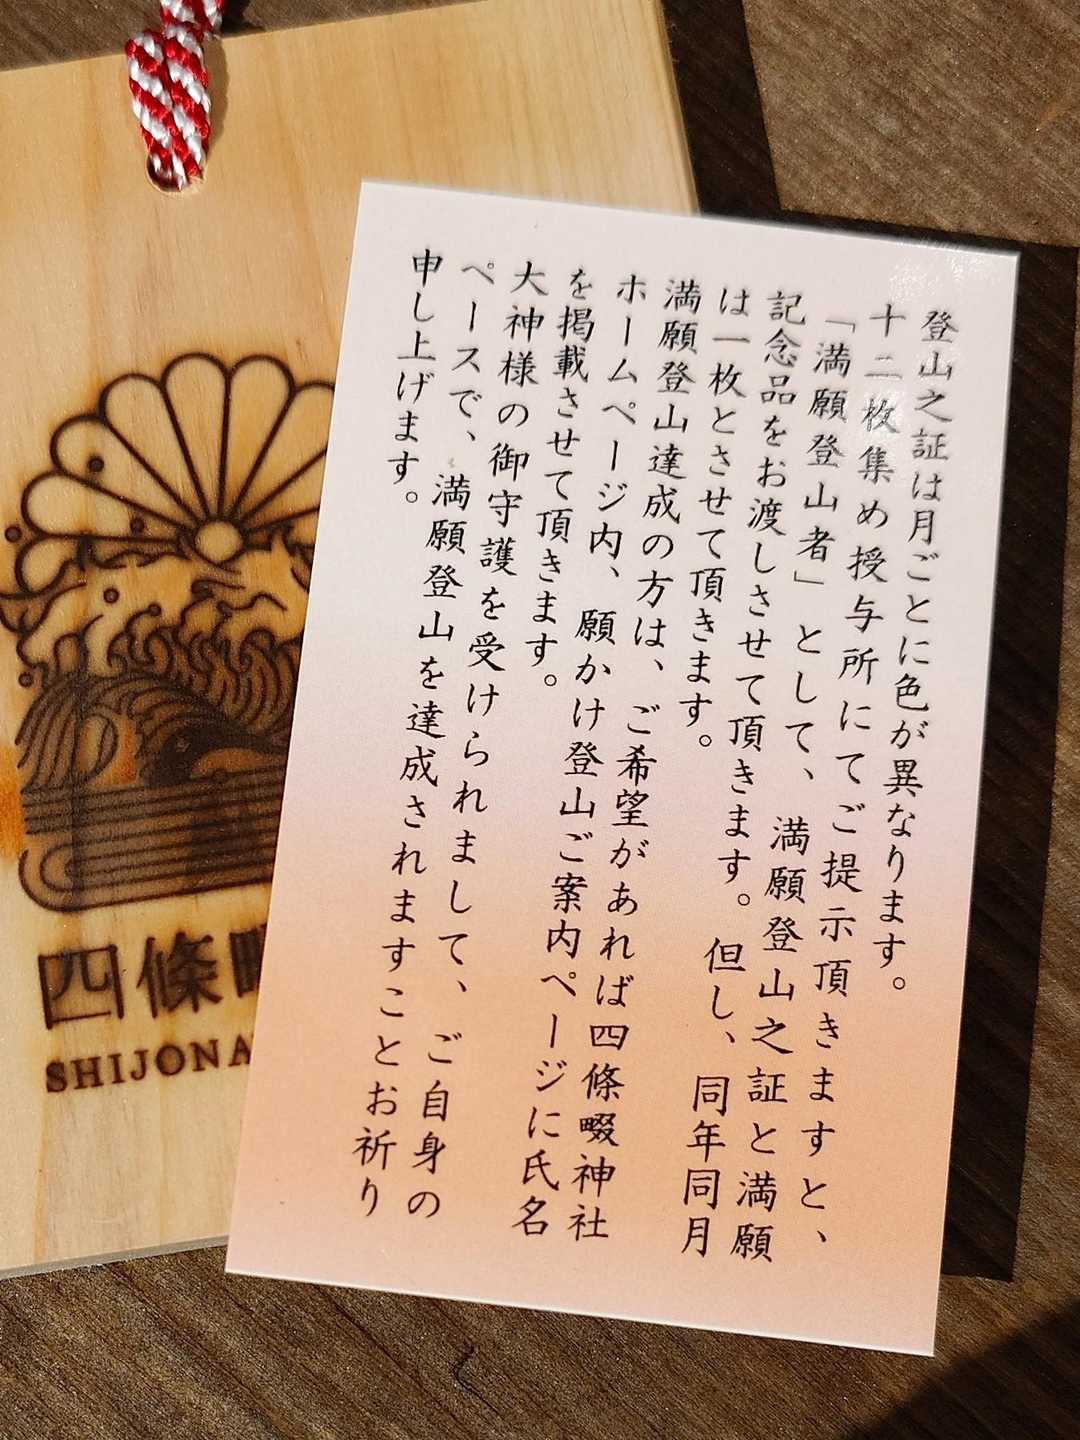 登山之証は月ごとに色が異なります。
十二枚集め授与所にてご提示頂きますと、
「満願登山者」として、満願登山之証と満願
記念品をお渡しさせて頂きます。但し、同年同月
は一枚とさせて頂きます。
満願登山達成の方は、ご希望があれば四條畷神社
ホームページ内、願かけ登山ご案内ページに氏名
を掲載させて頂きます。
大神様の御守護を受けられまして、ご自身の
ペースで、満願登山を達成されますことお祈り
申し上げます。
四條畷
SHIJONA